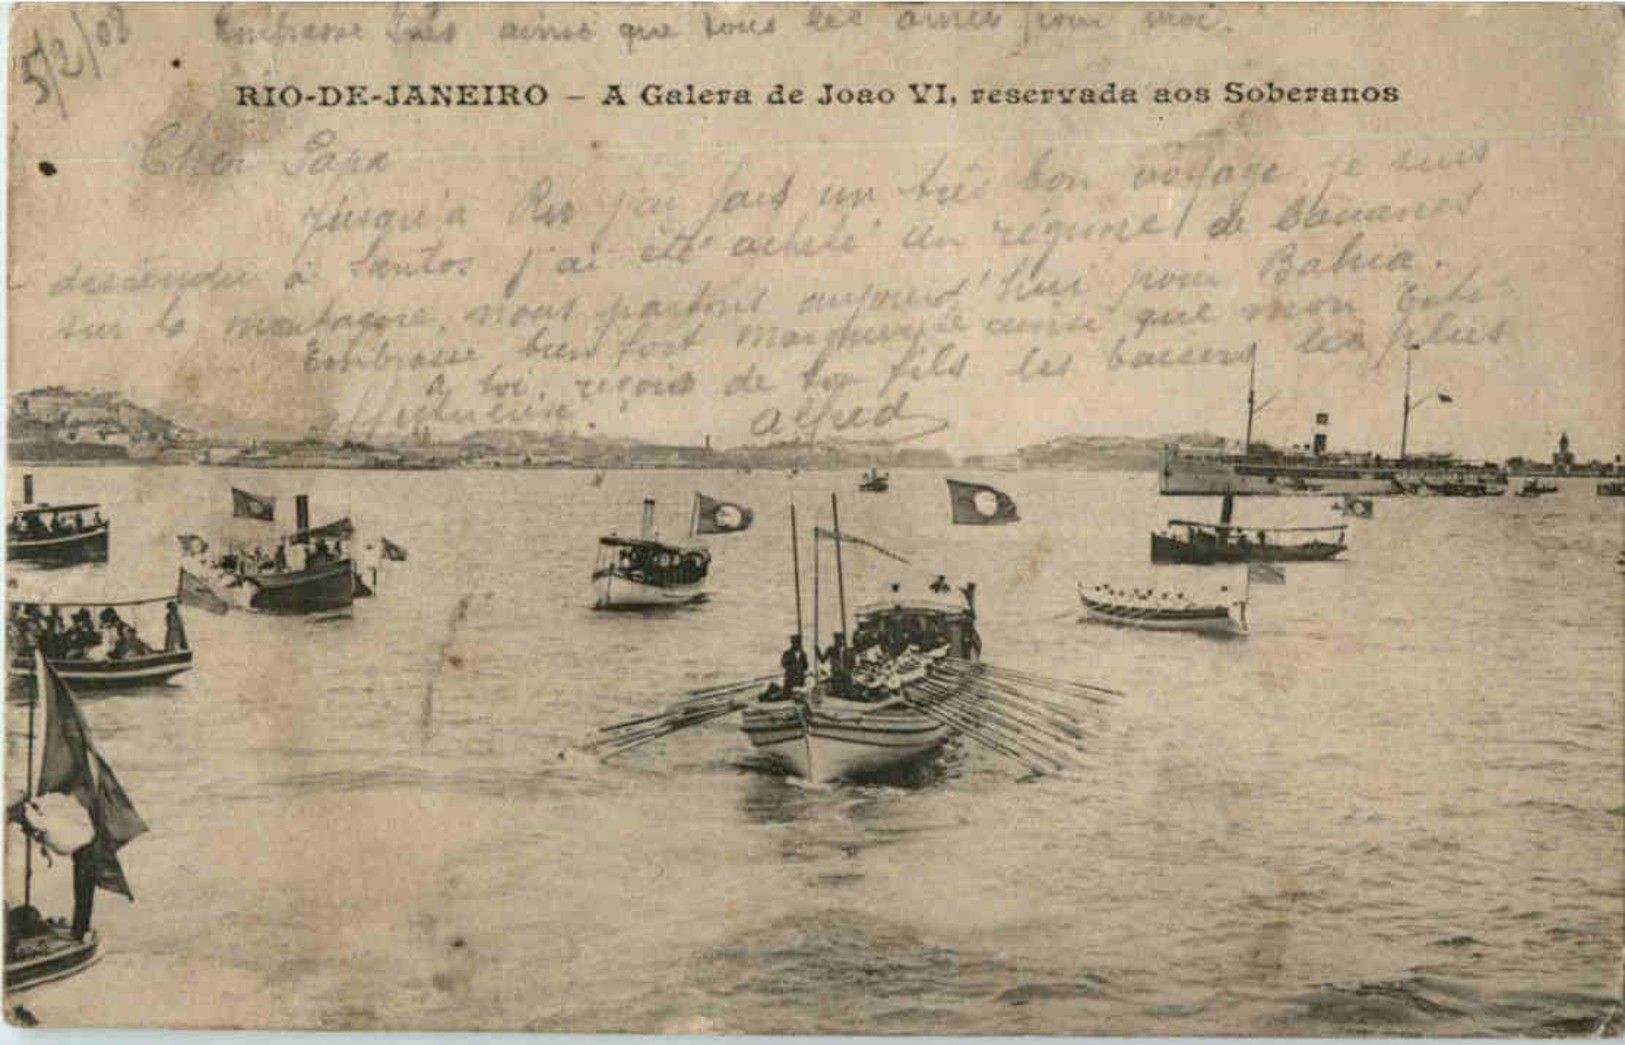 5/2/08
Embrasse Inès ainsi que tous les amies pour moi.
RIO-DE-JANEIRO – A Galera de Joao VI, reservada aos Soberanos
Cher Papa
jusqu'à Rio j'ai fait un très bon voyage je suis
descendu à Santos j'ai été acheté un régime de bananes
sur la montagne, nous partons aujourd'hui pour Bahia.
Embrasse bien fort Marguerite ainsi que mon
à toi, reçois de ton fils les baisers les plus
affectueux. Alfred